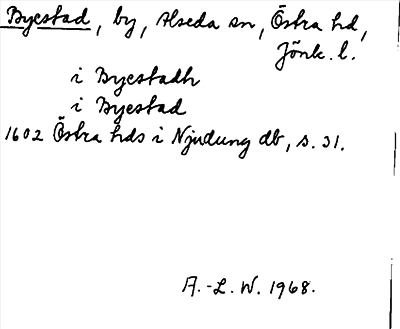 Byestad, by, Alseda sn, Östra hd,
Jönk. l.
i Byestadh
i Byestad
1602 Östra hds i Njudung db, s. 31.
A.-L. W. 1968.